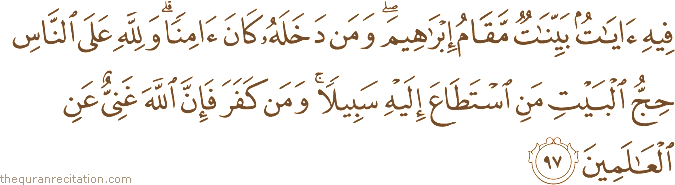 فِيهِ ءَايَٰتٌۢ بَيِّنَٰتٌ مَّقَامُ إِبْرَٰهِيمَ ۖ وَمَن دَخَلَهُۥ كَانَ ءَامِنًا ۗ وَلِلَّهِ عَلَى ٱلنَّاسِ
حِجُّ ٱلْبَيْتِ مَنِ ٱسْتَطَاعَ إِلَيْهِ سَبِيلًا ۚ وَمَن كَفَرَ فَإِنَّ ٱللَّهَ غَنِىٌّ عَنِ
ٱلْعَٰلَمِينَ ٩٧
thequranrecitation.com